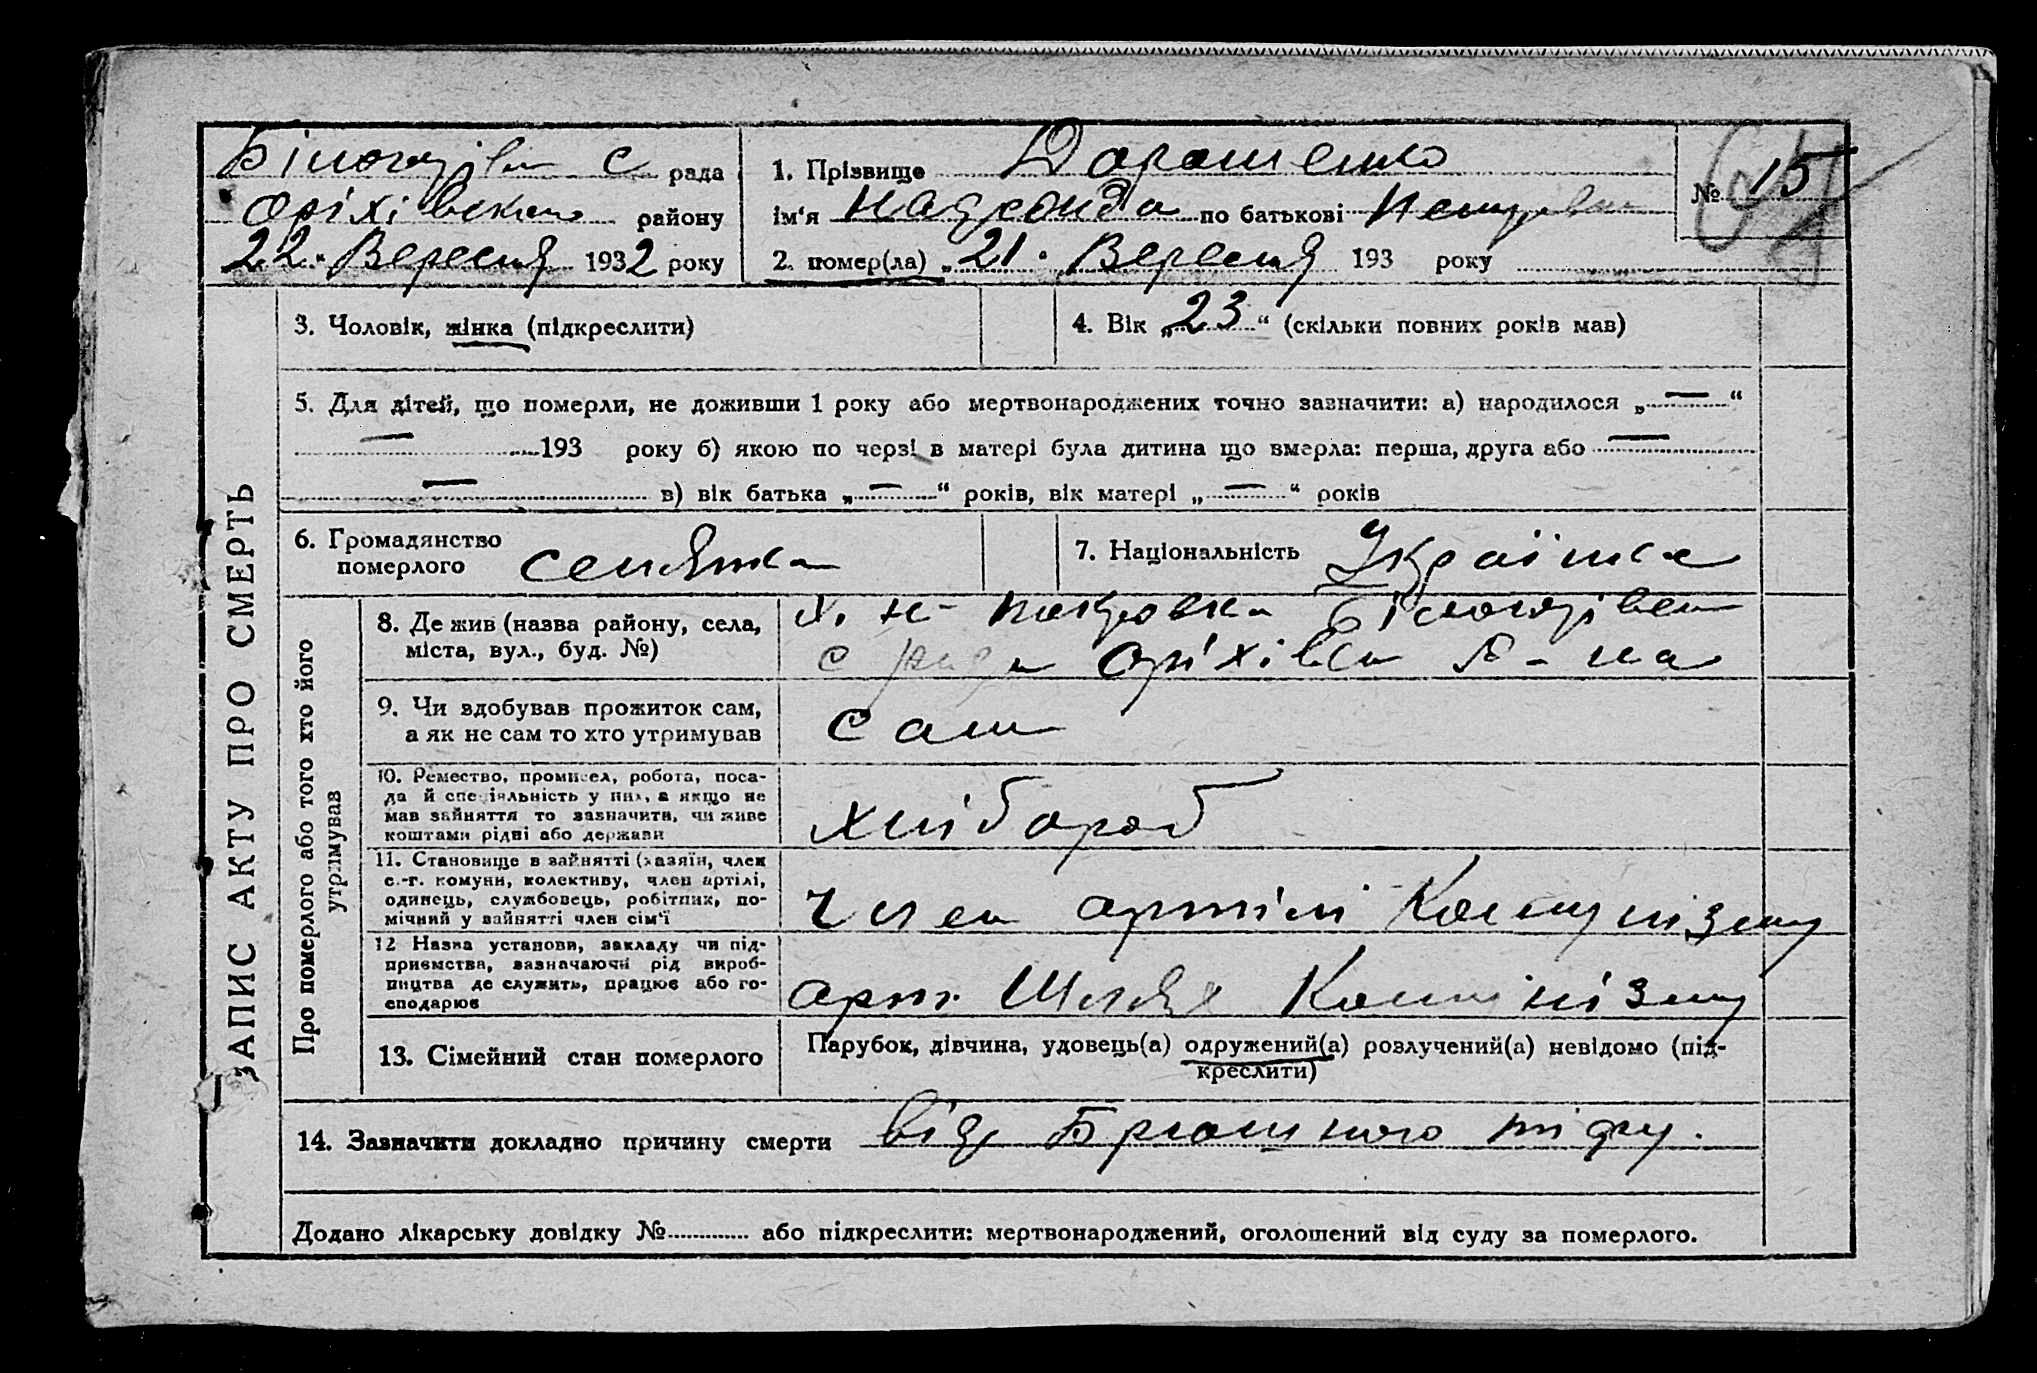 Білогорівск С рада
Оріхівського району
22 " Вересня 1932 року
1. Прізвище Дорошенко
ім'я по батькові
2. помер(ла) „21. Вересня 193 року
№ 15
3. Чоловік, жінка (підкреслити)
4. Вік „23" (скільки повних років мав)
5. Для дітей, що померли, не доживши 1 року або мертвонароджених точно зазначити: а) народилося „—"
— 193 року б) якою по черзі в матері була дитина що вмерла: перша, друга або —
— в) вік батька „—" років, вік матері „—" років
6. Громадянство
померлого селянка
7. Національність Українка
ЗАПИС АКТУ ПРО СМЕРТЬ
Про померлого або того хто його
утримував
8. Де жив (назва району, села,
міста, вул., буд. №)
х. Н-Покровка
с ради Оріхівск Р-на
9. Чи здобував прожиток сам,
а як не сам то хто утримував
сам
10. Ремество, промисел, робота, поса-
да й спеціяльність у них, а якщо не
мав зайняття то зазначити, чи живе
коштами рідні або держави
хлібороб
11. Становище в зайнятті (хазяїн, член
с.-г. комуни, колективу, член артілі,
одинець, службовець, робітник, по-
мічний у зайнятті член сім'ї
член артілі Комунізму
12 Назва установи, закладу чи під-
приємства, зазначаючи рід вироб-
ництва де служить, працює або го-
сподарює
арт. Шлях Комунізму
13. Сімейний стан померлого
Парубок, дівчина, удовець(а) одружений(а) розлучений(а) невідомо (під-
креслити)
14. Зазначити докладно причину смерти від Брюшного тіфу.
Додано лікарську довідку № або підкреслити: мертвонароджений, оголошений від суду за померлого.